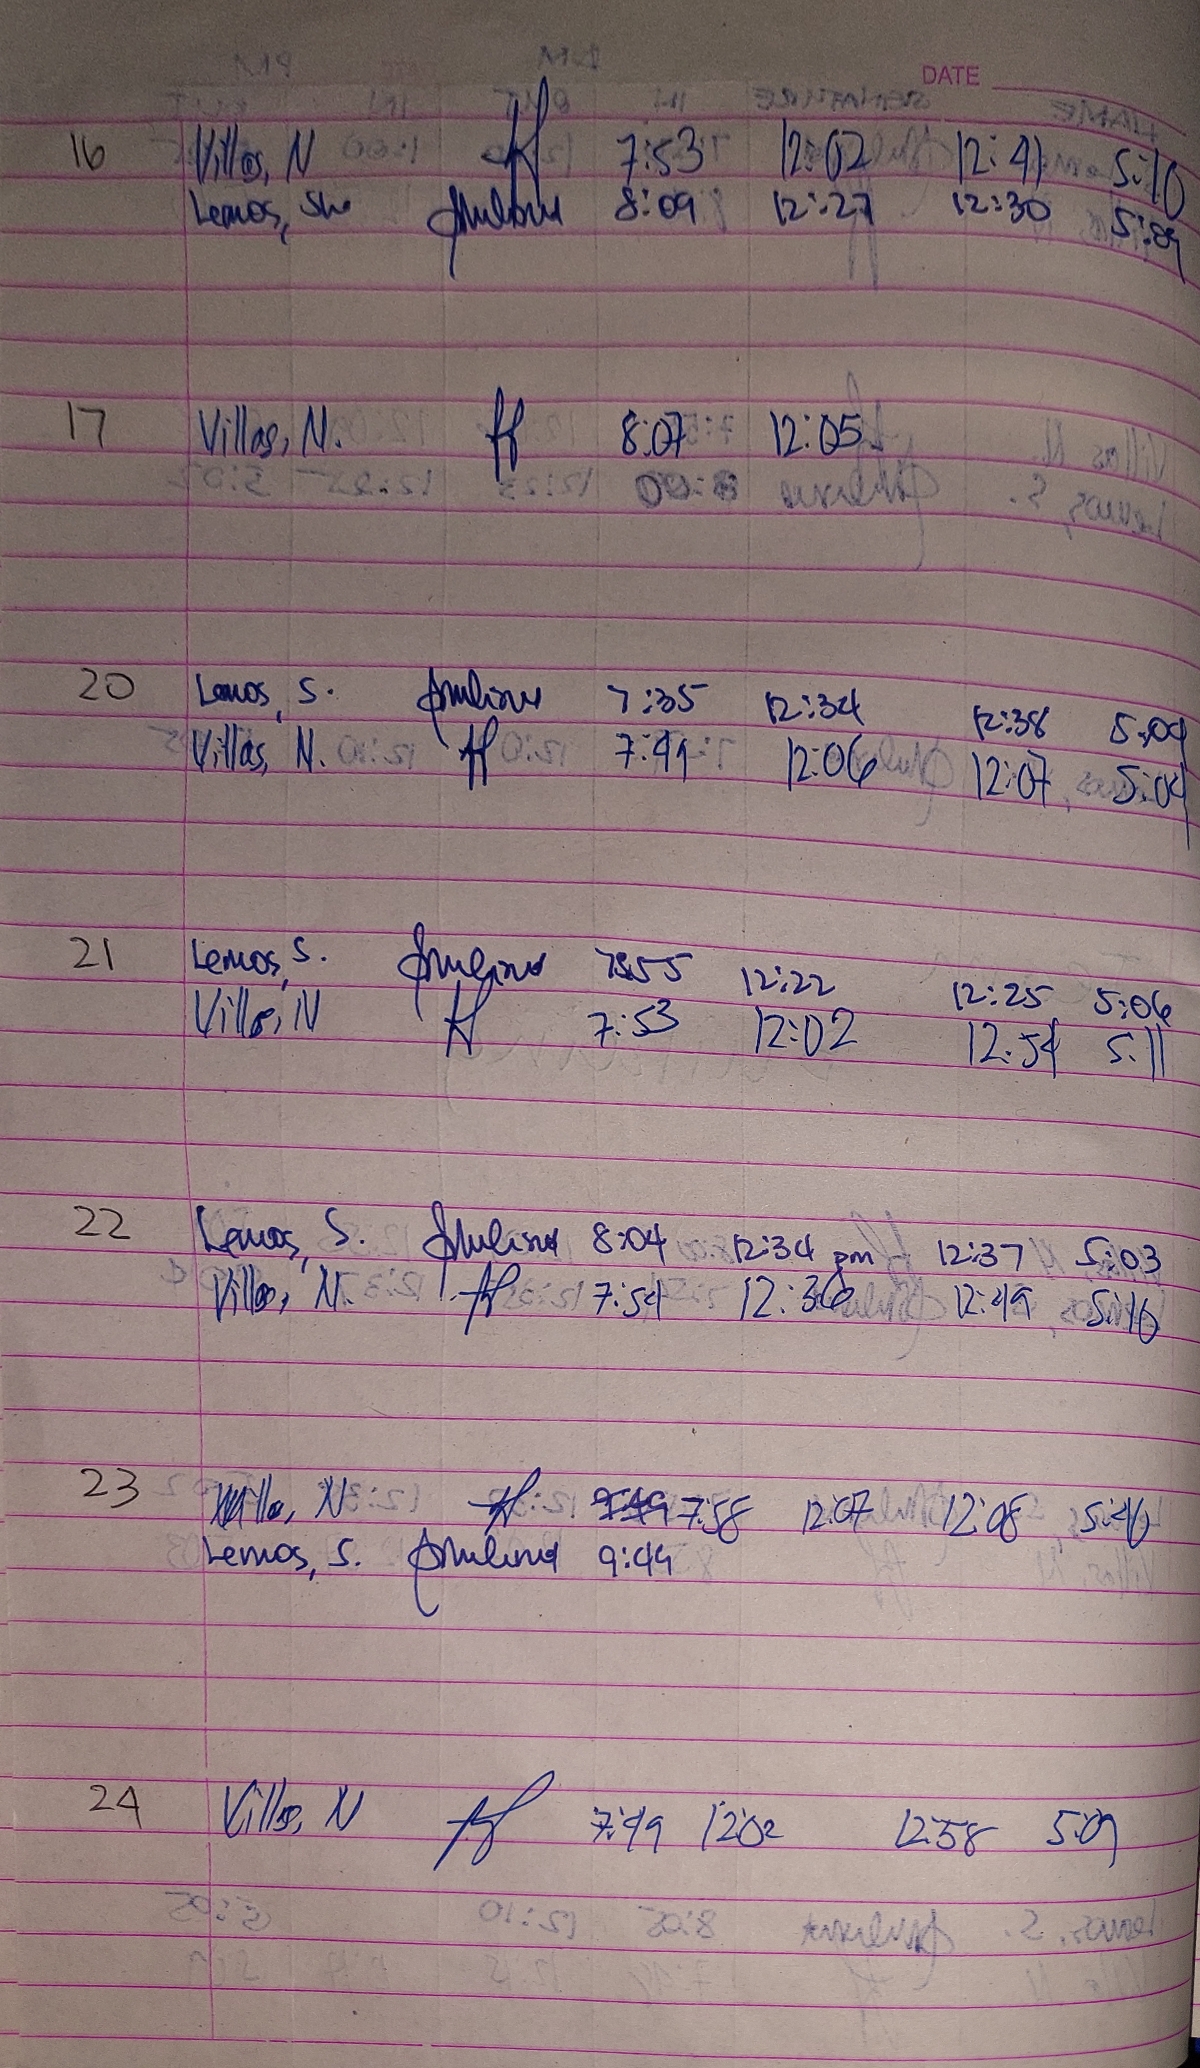 DATE
16 Villas, N 7:53 12:02 12:41 5:10
Lemos, She 8:09 12:27 12:30 5:09
17 Villas, N. 8:07 12:05
20 Lemos, S. 7:35 12:34 12:38 5:04
Villas, N. 7:49 12:06 12:07 5:04
21 Lemos, S. 7:55 12:22 12:25 5:06
Villas, N 7:53 12:02 12:54 5:11
22 Lemos, S. 8:04 12:34 pm 12:37 5:03
Villas, N. 7:54 12:36 12:49 5:10
23 Villas, N 7:58 12:07 12:08 5:10
Lemos, S. 9:49
24 Villas, N 7:49 12:02 12:58 5:09